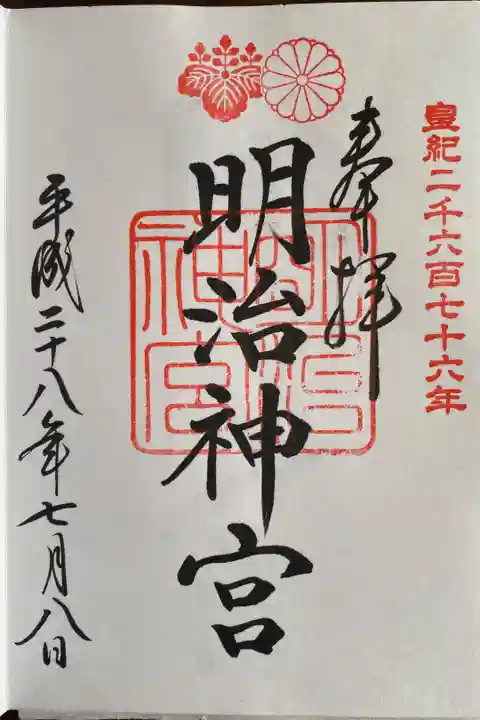 皇紀二千六百七十六年
奉拝
明治神宮
明治神宮
平成二十八年七月八日